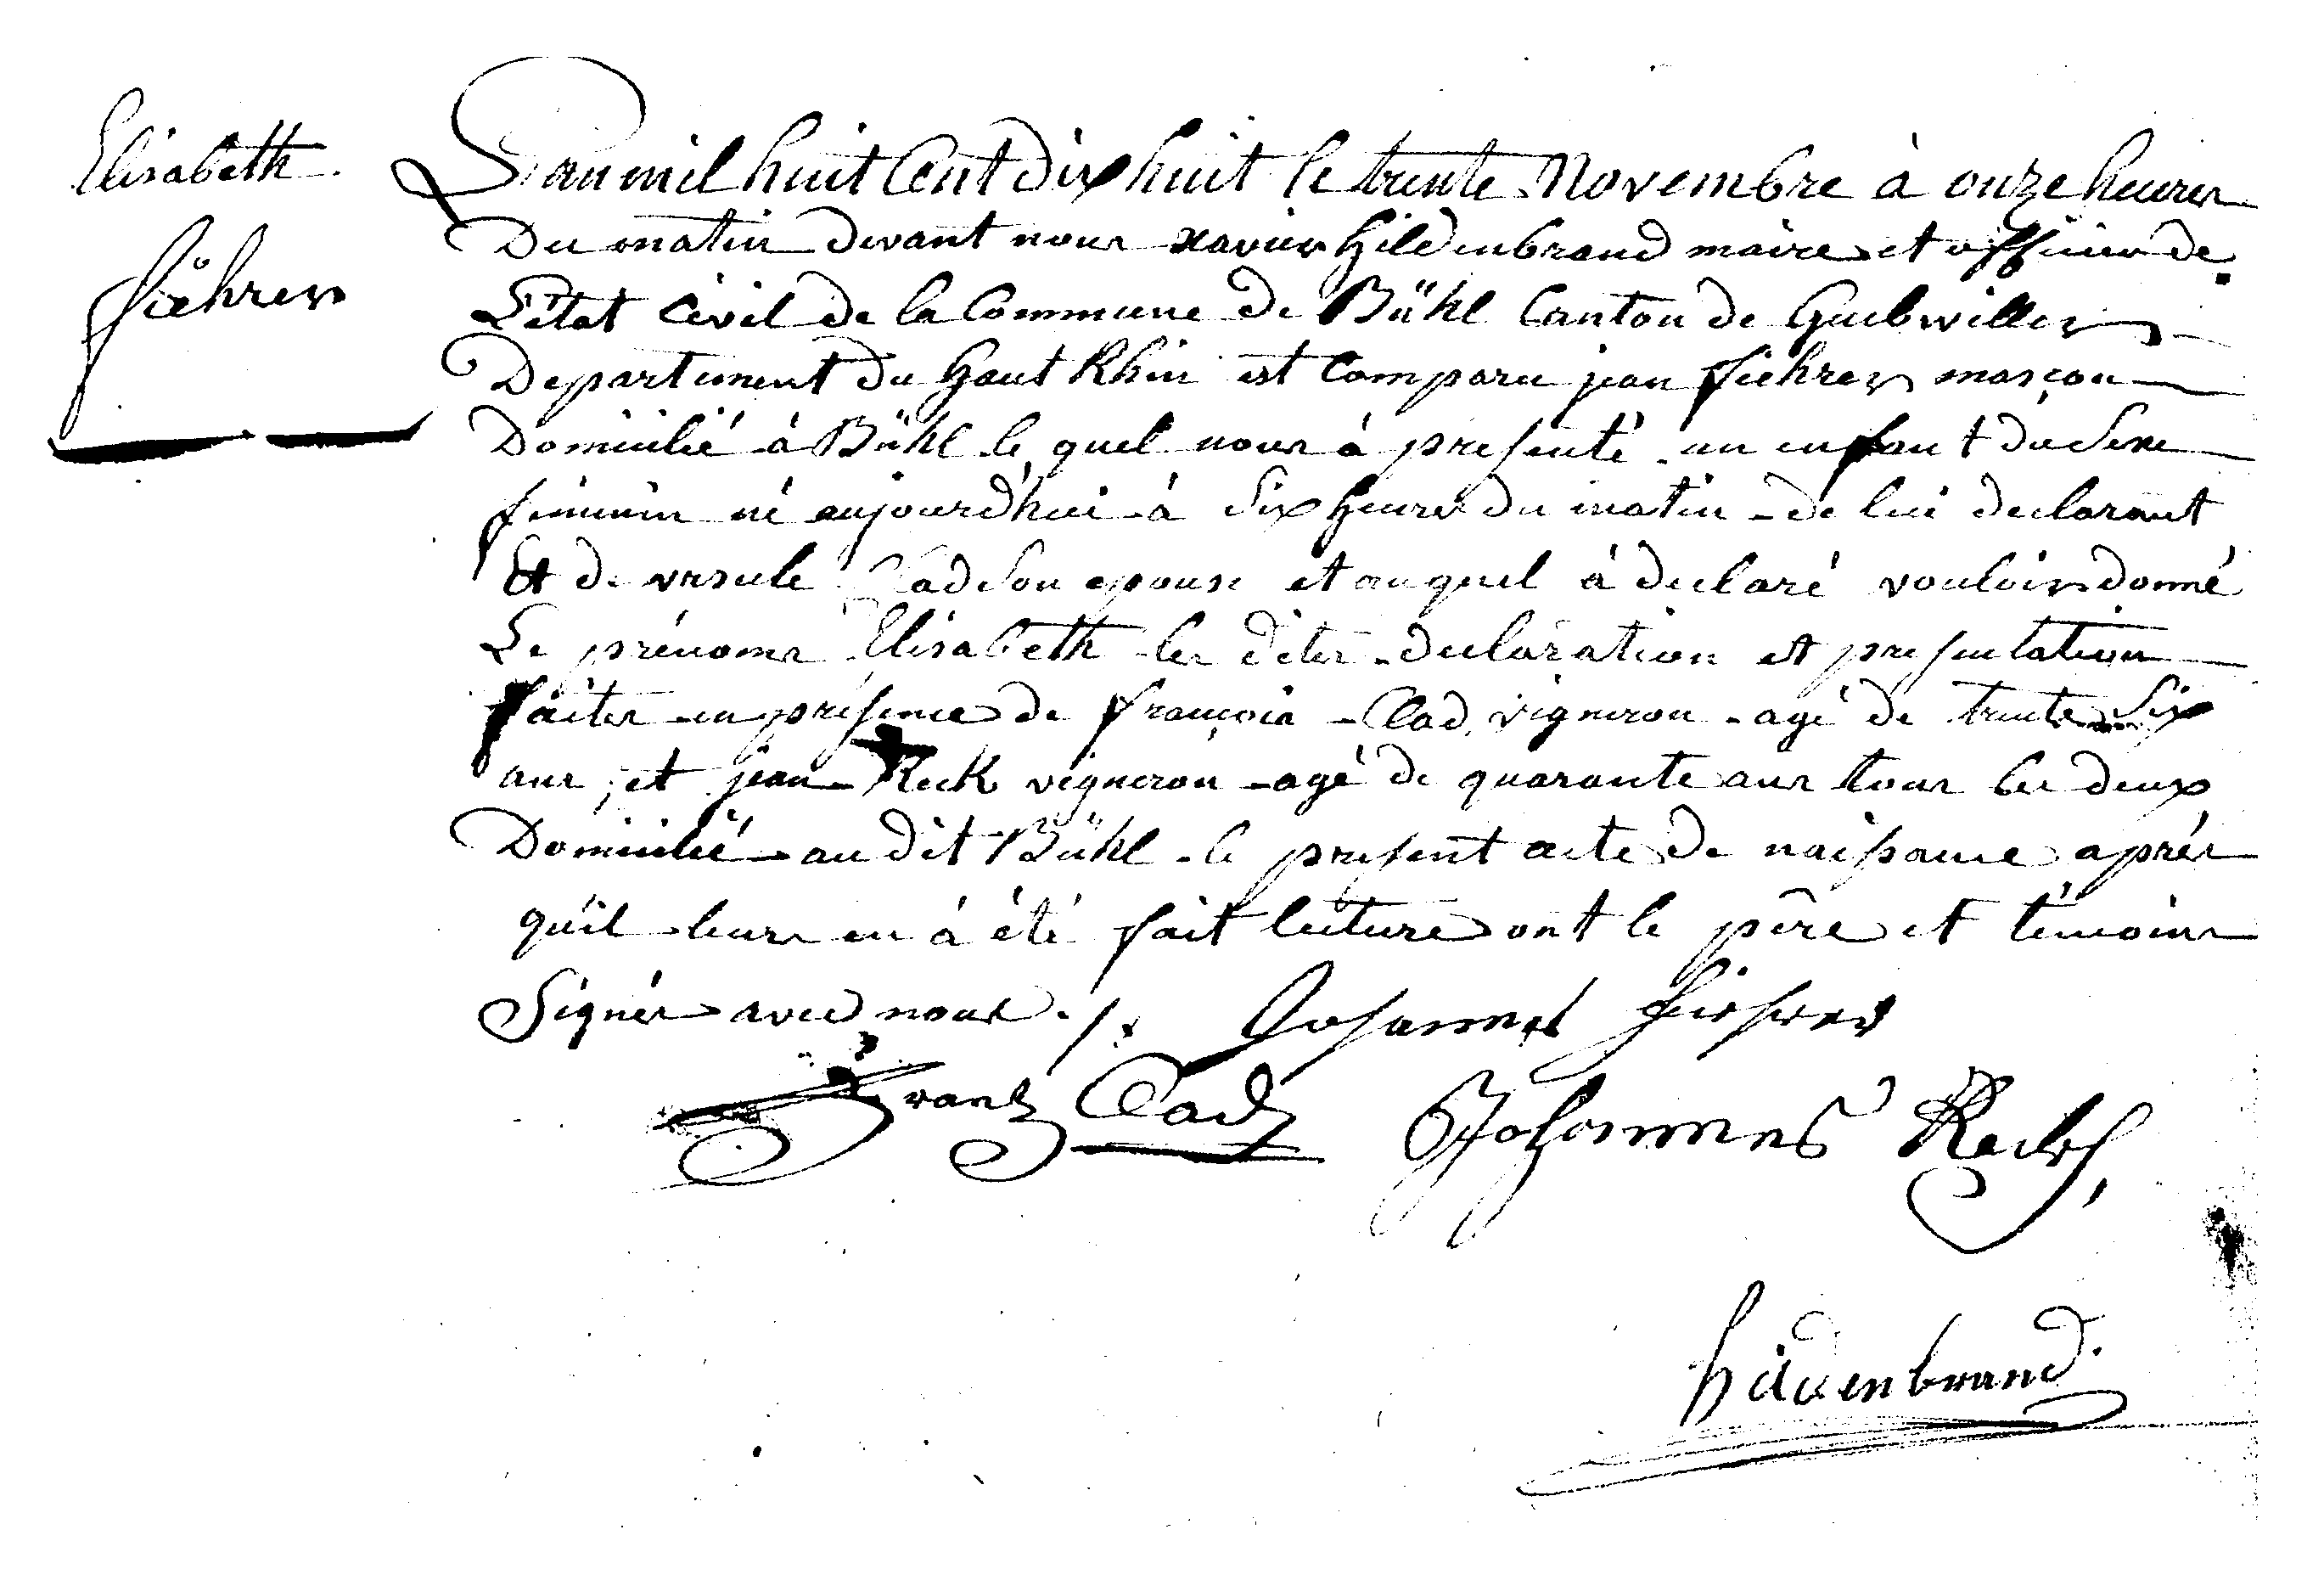 Elisabeth
fiehrer
L'an mil huit Cent dix huit le trente Novembre à onze heures
Du matin devant nous xavier hildenbrand maire et officier de
L'état Civil de la Commune de Bühl Canton de Guebwiller
Departement du haut Rhin est Comparu jean fiehrer maçon
Domicilié à Bühl le quel nous à presenté un enfant du Sexe
féminin né aujourd'hui à Six heures du matin de lui declarant
Et de ursule Clad Son epouse et auquel à declaré vouloir donné
Le prénoms Elisabeth les dites declaration et presentation
faites en présence de françois Clad vigneron agé de trente Six
ans, et jean Reck vigneron agé de quarante ans tous les deux
Domicilié au dit Bühl le present acte de naissance après
qu'il leurs en à été fait lecture ont le père et témoins
Signés avec nous ./.
Johannes fiehrer
Frantz Clad Johannes Reck
hildenbrand